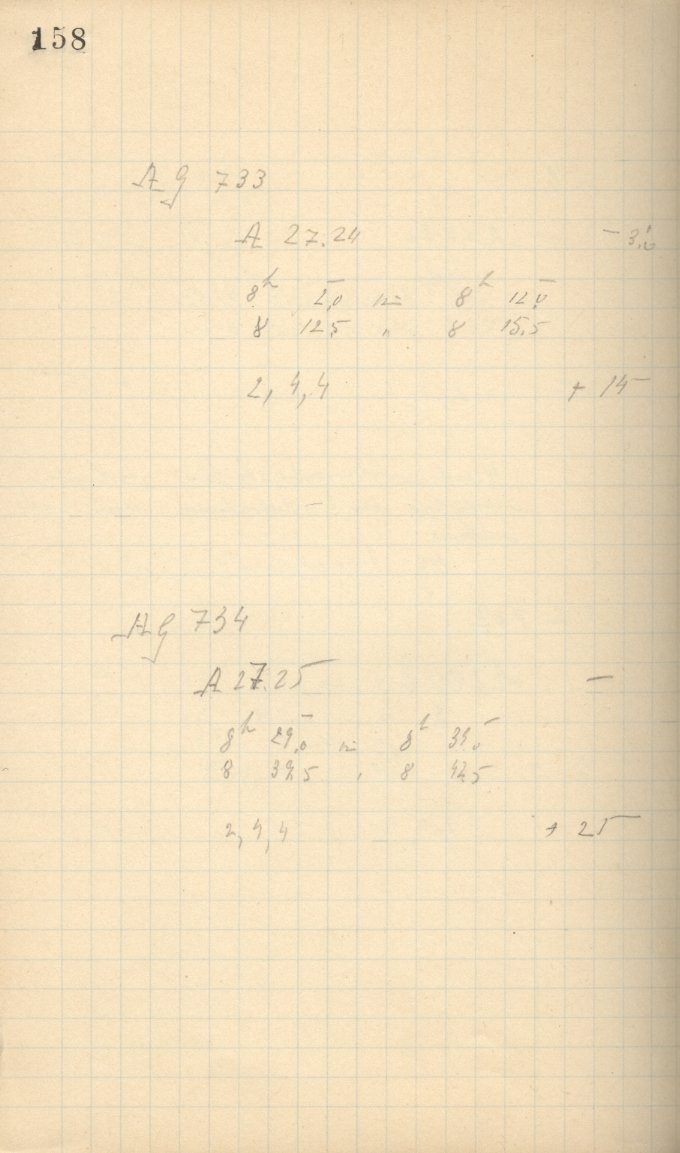 158
AG 733
A 27.24 - 3.0
8h 2.0 8h 12.0
8 12.5 " 8 15.5
2, 4, 4 + 15
AG 734
A 27.25 -
8h 29.0 8h 39.0
8 39.5 " 8 42.5
2, 4, 4 + 25